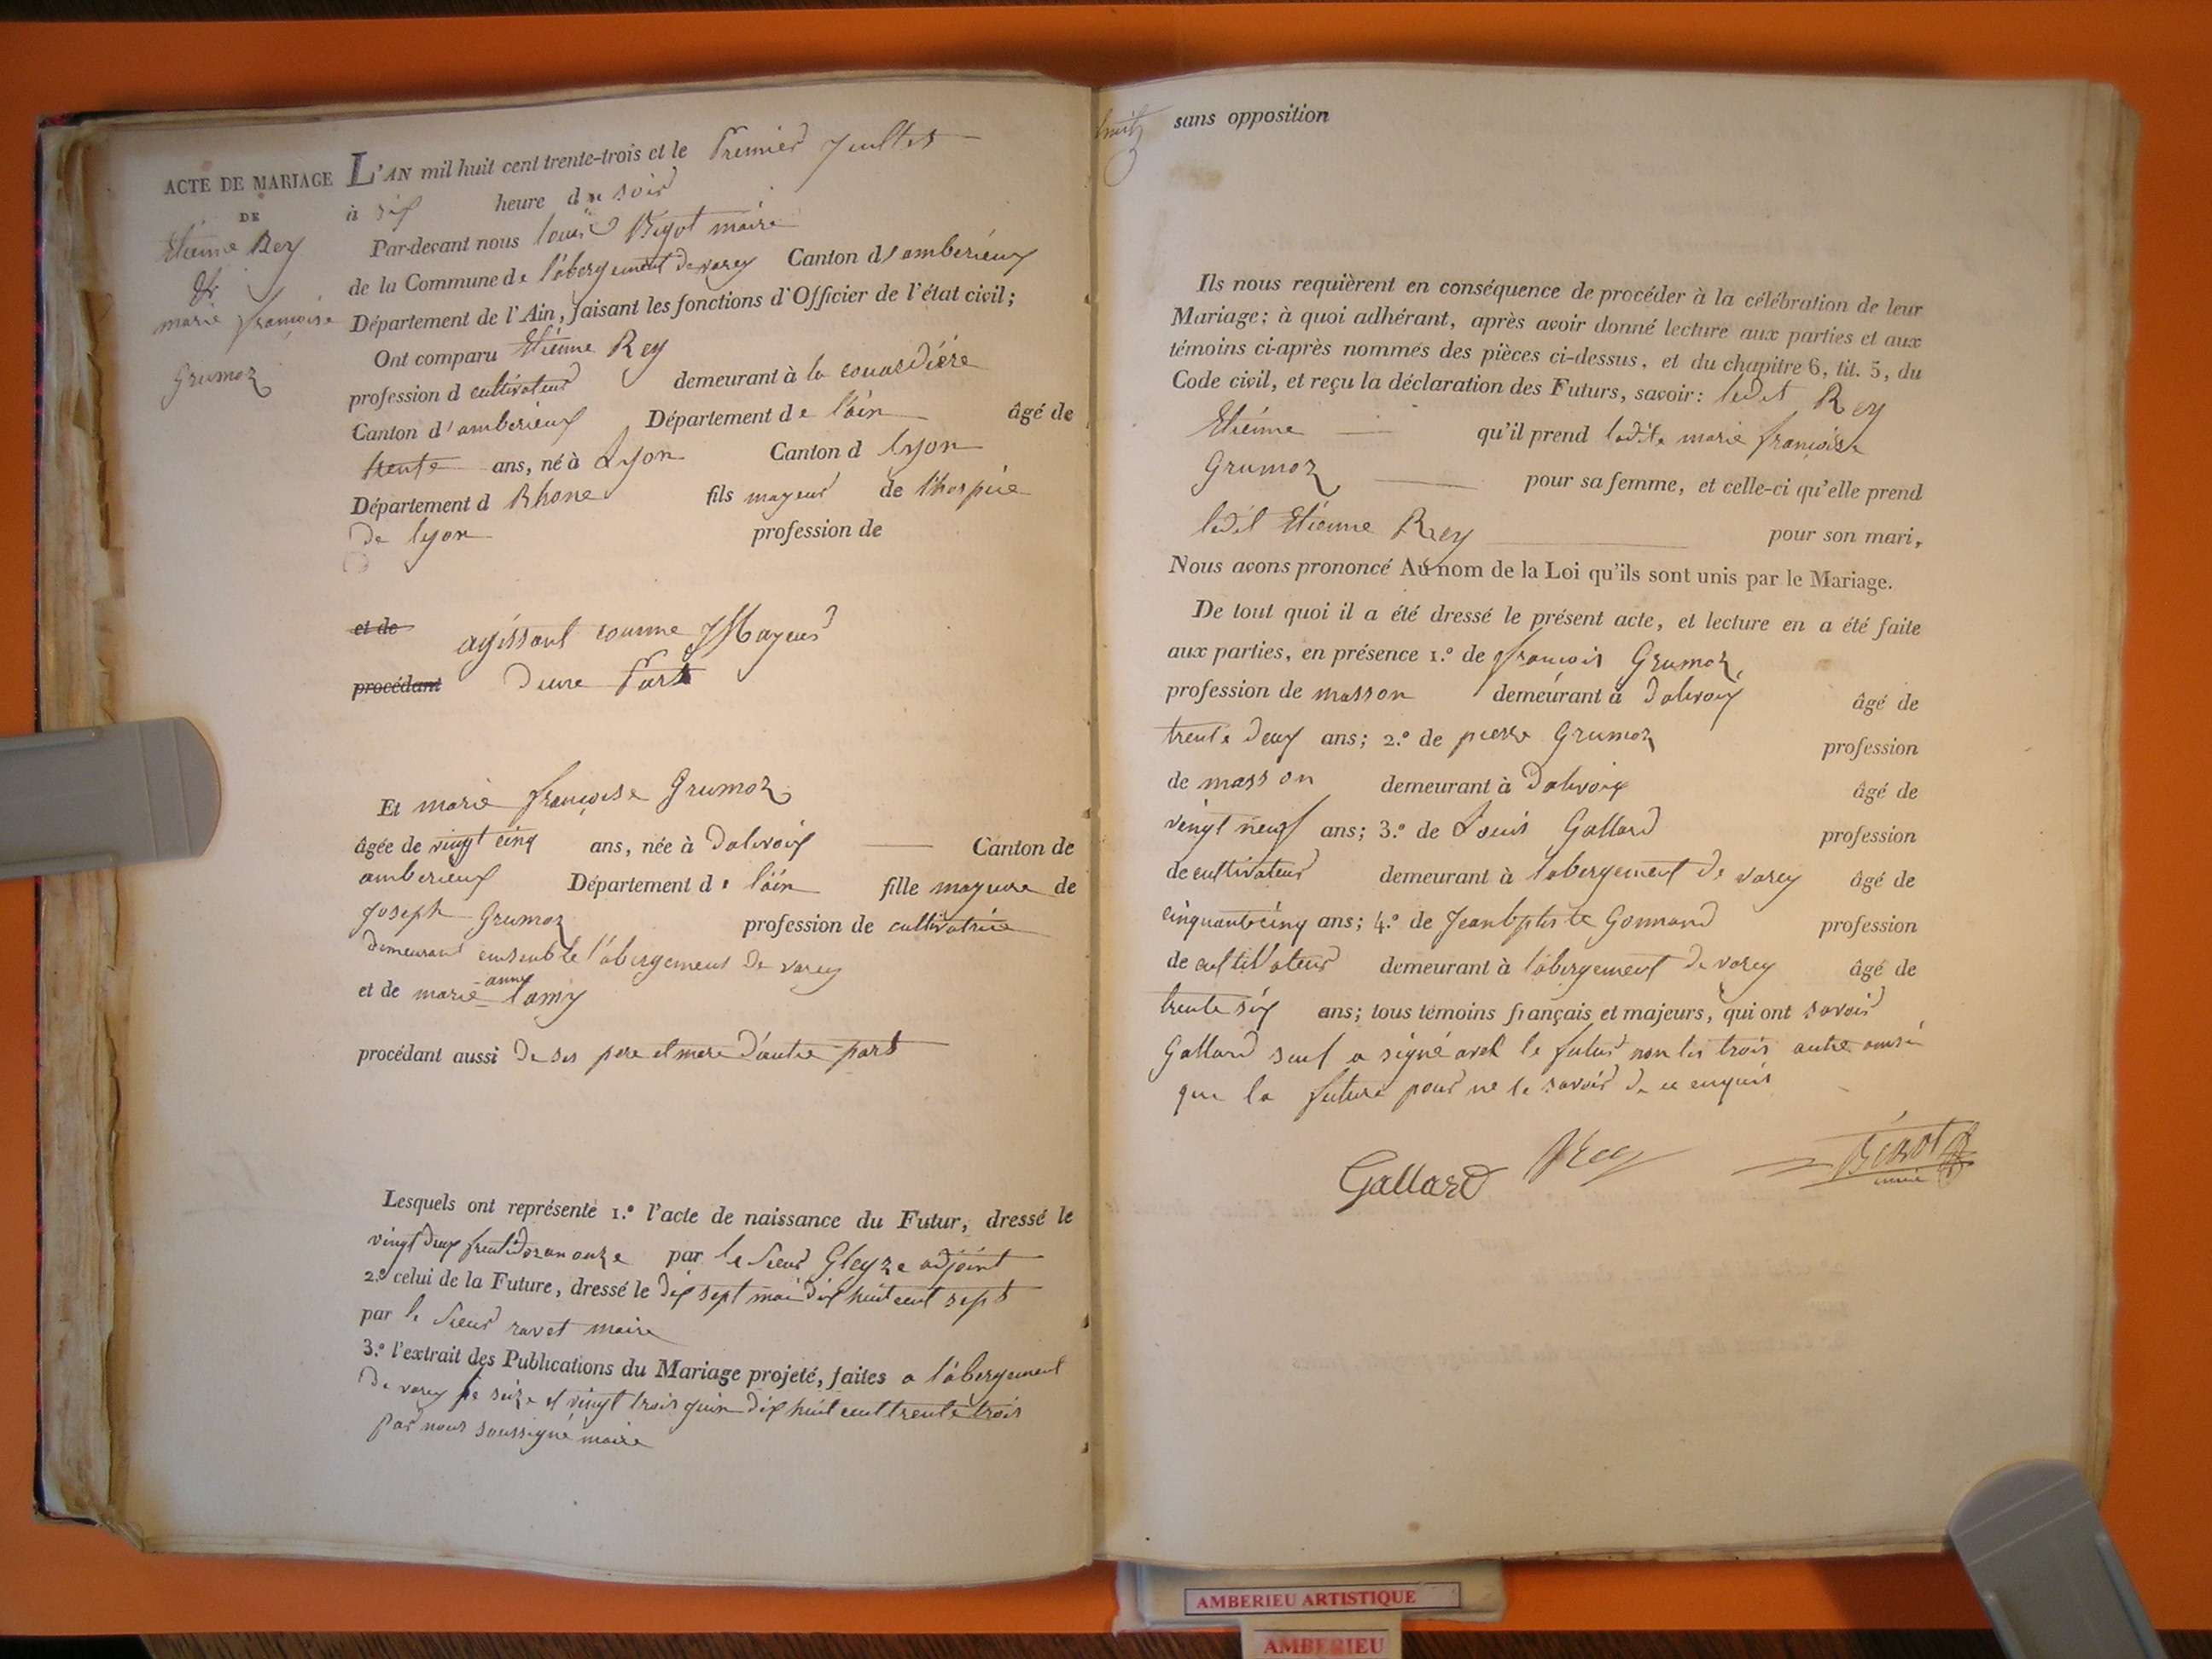 ACTE DE MARIAGE
DE
Etienne Rey
&
marie françoise
Grumoz
L'AN mil huit cent trente-trois et le Premier Juillet
à six heure du soir
Par-devant nous louis Bigot maire
de la Commune de l'abergement de varey Canton d'amberieux
Département de l'Ain, faisant les fonctions d'Officier de l'état civil;
Ont comparu Etienne Rey
profession d cultivateur demeurant à la couardière
Canton d'amberieux Département de l'ain âgé de
trente ans, né à Lyon Canton d lyon
Département d Rhone fils mayeur de l'hospice
De lyon profession de
et de agissant comme Mayeur
procédant D'une Part
Et marie françoise Grumoz
âgée de vingt cinq ans, née à Dalivoix Canton de
amberieux Département de l'ain fille mayeure de
Joseph Grumoz profession de cultivatrice
demeurant ensemble l'abergement de varey
et de marie anne lamy
procédant aussi de ses pere et mere d'autre part
Lesquels ont représenté 1.º l'acte de naissance du Futur, dressé le
vingt deux fructidor an onze par le Sieur Gleyze adjoint
2.º celui de la Future, dressé le dix sept mai dix huit cent sept
par le Sieur ravet maire
3.º l'extrait des Publications du Mariage projeté, faites a l'abergement
De varey le seize et vingt trois juin dix huit cent trente trois
par nous soussigné maire
huit sans opposition
Ils nous requièrent en conséquence de procéder à la célébration de leur
Mariage; à quoi adhérant, après avoir donné lecture aux parties et aux
témoins ci-après nommés des pièces ci-dessus, et du chapitre 6, tit. 5, du
Code civil, et reçu la déclaration des Futurs, savoir: ledit Rey
Etienne qu'il prend ladite marie françoise
Grumoz pour sa femme, et celle-ci qu'elle prend
ledit Etienne Rey pour son mari,
Nous avons prononcé Au nom de la Loi qu'ils sont unis par le Mariage.
De tout quoi il a été dressé le présent acte, et lecture en a été faite
aux parties, en présence 1.º de françois Grumoz
profession de masson demeurant à Dalivoix âgé de
trente deux ans; 2.º de pierre Grumoz profession
de masson demeurant à Dalivoix âgé de
vingt neuf ans; 3.º de Louis Gallard profession
de cultivateur demeurant à l'abergement de varey âgé de
cinquante cinq ans; 4.º de Jean bptiste Gonnand profession
de cultivateur demeurant à l'abergement de varey âgé de
trente six ans; tous témoins français et majeurs, qui ont savoir
Gallard seul a signé avec le futur non les trois autre ainsi
que la future pour ne le savoir de ce enquis
Gallard Rey Bigot
maire
AMBERIEU ARTISTIQUE
AMBERIEU